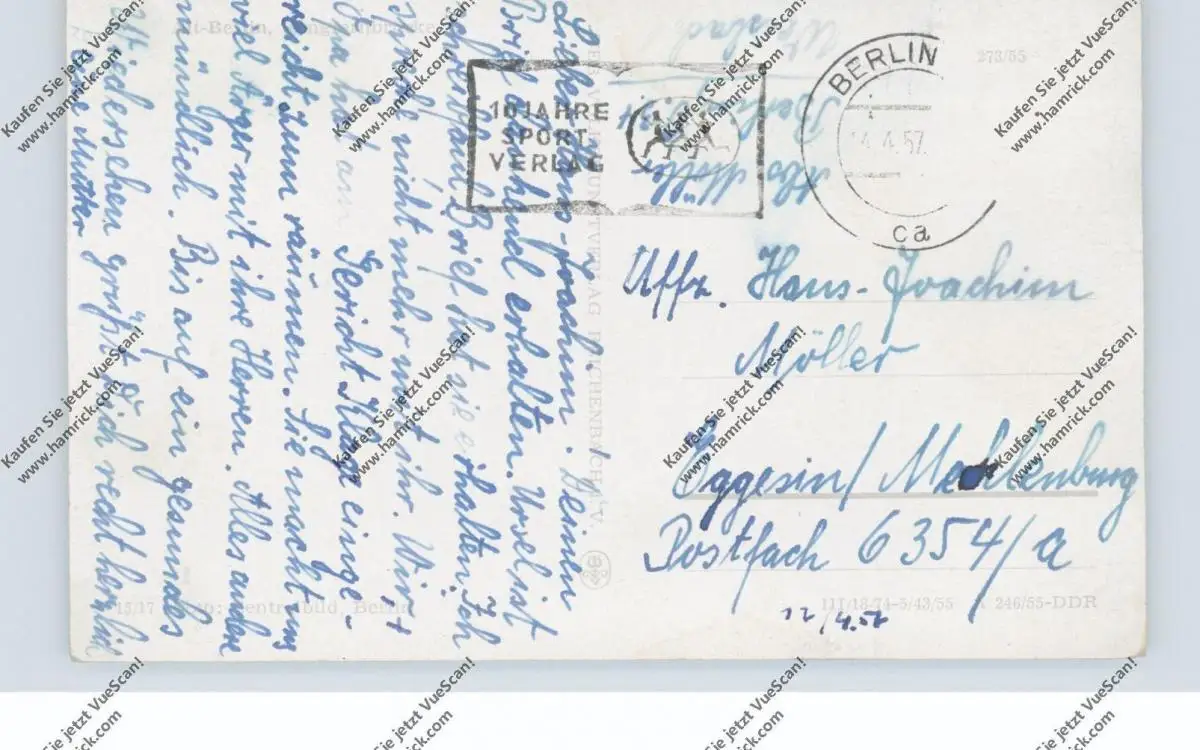 BERLIN
14.4.57.
ca
10 JAHRE
SPORT
VERLAG
273/55
Abs Möller
Berlin
Uffz. Hans-Joachim
Möller
Eggesin/Mecklenburg
Postfach 6354/a
12/4.57
III/18-74-5/43/55 A 246/55-DDR
15/17 Zentralbild, Berlin
Lieber Hans-Joachim. Deinen
Brief dankend erhalten. Ursel ist
Brief hat sie erhalten. Ich
nicht mehr mit ihr. Wir +
Opa hat am Gericht Klage einge-
reicht zum räumen. Sie macht uns
viel Ärger mit ihre Herren. Alles andere
mündlich. Bis auf ein gesundes
Wiedersehen grüßt Dich recht herzlich
Deine Mutter
Kaufen Sie jetzt VueScan!
www.hamrick.com